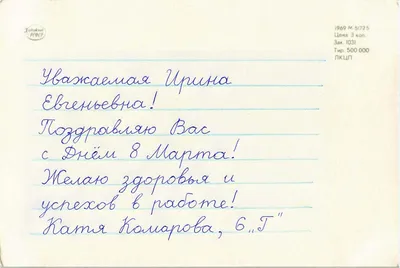 1989 РК 5/73 б
Цена 3 коп.
Зак. 1031
Тир. 500.000
ЛКЦП
Уважаемая Ирина
Евгеньевна!
Поздравляю Вас
с Днём 8 Марта!
Желаю здоровья и
успехов в работе!
Катя Комарова, 6 „Г”